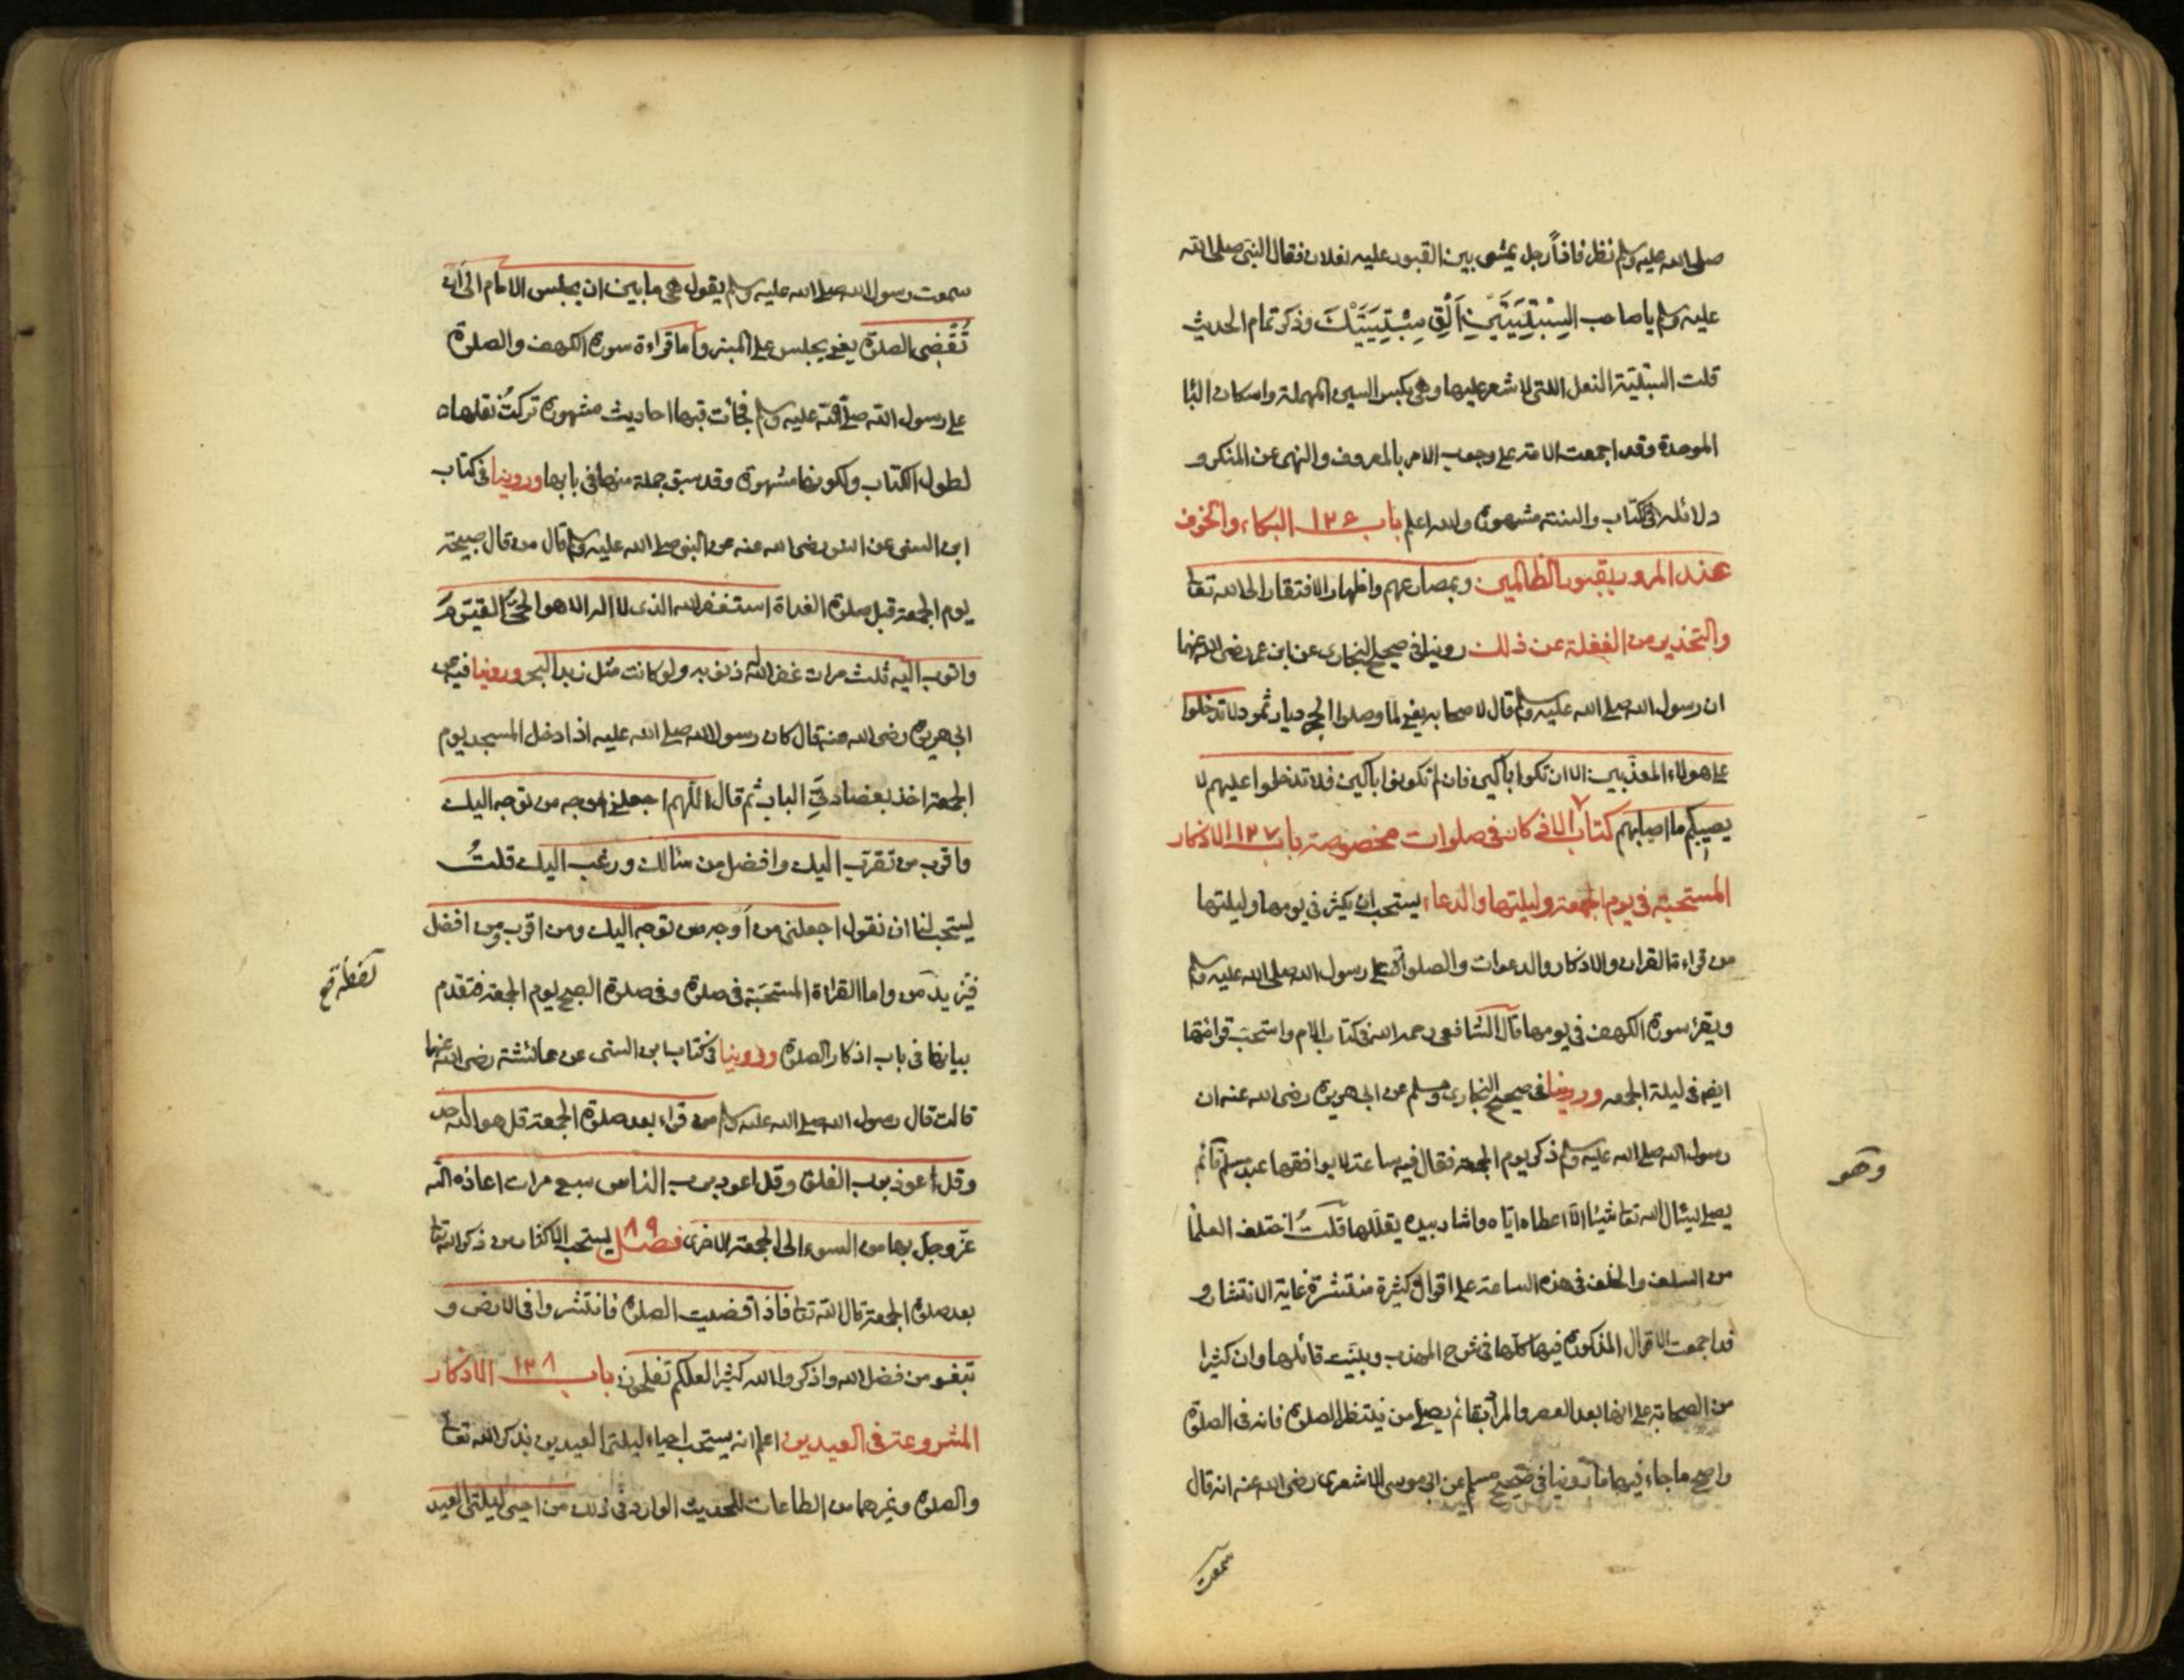 صلى الله عليه وسلم نظر فاذاً رجل يمشى بين القبور عليه نعلان فقال النبى صلى الله
عليه وسلم يا صاحب السِّبْتِيَّتَيْنِ اَلْقِ سِبْتِيَّتَيْكَ وذكر تمام الحديث
قلت السبتية النعل التى لا شعر عليها وهى بكسر السين المهملة واسكان البا
الموحدة وقد اجمعت الامة على وجوب الامر بالمعروف والنهى عن المنكر و
دلائله فى الكتاب والسنة مشهورة والله اعلم باب ١٢٦ البكاء والخوف
عند المرور بقبور الظالمين وبمصارعهم واظهار الافتقار الى الله تعا
والتحذير من الغفلة عن ذلك روينا فى صحيح البخارى عن ابن عمر رضى الله عنهما
ان رسول الله صلى الله عليه وسلم قال لاصحابه يعنى لما وصلوا الحجر ديار ثمود لا تدخلوا
على هولاء المعذبين الا ان تكوا باكين فان لم تكونوا باكين فلا تدخلوا عليهم لا
يصيبكم ما اصابهم كتاب الاذكار فى صلوات مخصوصة باب ١٢٧ الاذكار
المستحبة فى يوم الجمعة وليلتها والدعاء يستحب ان يكثر فى يومها وليلتها
من قراءة القران والاذكار والدعوات والصلوة على رسول الله صلى الله عليه وسلم
ويقرء سورة الكهف فى يومها قال الشافعى رحمه الله فى كتاب الام واستحب قرائتها
ايضا فى ليلة الجمعه وروينا فى صحيح البخارى ومسلم عن ابى هريرة رضى الله عنه ان
رسول الله صلى الله عليه وسلم ذكر يوم الجمعة فقال فيه ساعة لا يوافقها عبد مسلم قائم
وهو
يصلى يسئال الله تعا شيئا الا اعطاه اياه واشار بيده يقللها قلت اختلف العلما
من السلف والخلف فى هذه الساعة على اقوال كثيرة منتشرة غاية الانتشار و
قد اجمعت الاقوال المذكورة فيها كلها فى شرح المهذب وبينت قائلها وان كثيرا
من الصحابة على انها بعد العصر والمراد بقائم يصلى من ينتظر الصلوة فانه فى الصلوة
واصح ما جاء فيها ما روينا فى صحيح مسلم عن ابى موسى الاشعرى رضى الله عنه انه قال
سمعت
سمعت رسول الله صلى الله عليه وسلم يقول هى ما بين ان يجلس الامام الى ان
تُقْضى الصلوة يعنى يجلس على المنبر واما قراءة سورة الكهف والصلوة
على رسول الله صلى الله عليه وسلم فجائت فيها احاديث مشهورة تركت نقلها
لطول الكتاب ولكونها مشهورة وقد سبق جملة منها فى بابها وروينا فى كتاب
ابن السنى عن انس رضى الله عنه عن النبى صلى الله عليه وسلم قال من قال صبيحة
يوم الجمعة قبل صلوة الغداة استغفر الله الذى لا اله الا هو الحىَّ القيوم
واتوب اليه ثلث مرات غفر الله له ذنوبه ولو كانت مثل زبد البحر وروينا فيه عن
ابى هريرة رضى الله عنه قال كان رسول الله صلى الله عليه اذا دخل المسجد يوم
الجمعة اخذ بعضادتى الباب ثم قال اللهم اجعلنى اوجه من توجه اليك
واقرب من تقرب اليك وافضل من سالك ورغب اليك قلتُ
يستحب لنا ان نقول اجعلنى من اوجه من توجه اليك ومن اقرب ومن افضل
فنزيد من واما القراة المستحبة فى صلوة وفى صلوة الصبح يوم الجمعة فتقدم
بيانها فى باب اذكار الصلوة وروينا فى كتاب ابن السنى عن عائشة رضى الله عنها
قالت قال رسول الله صلى الله عليه وسلم من قراء بعد صلوة الجمعة قل هو الله احد
وقل اعوذ برب الفلق وقل اعوذ برب الناس سبع مرات اعاذه الله
عز وجل بها من السوء الى الجمعة الاخرى فصل ٨٩ يستحب الاكثار من ذكر الله تعا
بعد صلوة الجمعة قال الله تعا فاذا قضيت الصلوة فانتشروا فى الارض و
تبغو من فضل الله واذكروا الله كثيرا لعلكم تفلحون باب ١٢٨ الاذكار
المشروعة فى العيدين اعلم انه يستحب احياء ليلتى العيدين بذكر الله تعا
والصلوة وغيرهما من الطاعات للحديث الوارد فى ذلك من احيى ليلتى العيد